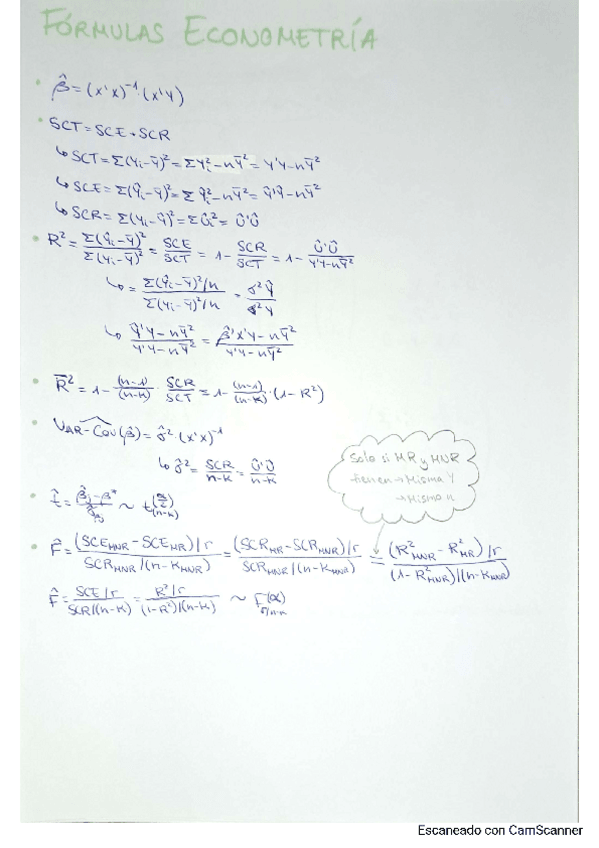 FÓRMULAS ECONOMETRÍA
• β̂ = (x'x)⁻¹·(x'y)
• SCT = SCE + SCR
↳ SCT = Σ(Yᵢ-Ȳ)² = ΣYᵢ²-nȲ² = Y'Y-nȲ²
↳ SCE = Σ(Ŷᵢ-Ȳ)² = ΣŶᵢ²-nȲ² = Ŷ'Ŷ-nȲ²
↳ SCR = Σ(Yᵢ-Ŷᵢ)² = ΣÛᵢ² = Û'Û
• R² = Σ(Ŷᵢ-Ȳ)²/Σ(Yᵢ-Ȳ)² = SCE/SCT = 1 - SCR/SCT = 1 - Û'Û/(Y'Y-nȲ²)
↳ = (Σ(Ŷᵢ-Ȳ)²/n)/(Σ(Yᵢ-Ȳ)²/n) = σ²Ŷ/σ²Y
↳ (Ŷ'Ŷ-nȲ²)/(Y'Y-nȲ²) = (β̂'X'Y-nȲ²)/(Y'Y-nȲ²)
• R̄² = 1 - (n-1)/(n-k) · SCR/SCT = 1 - (n-1)/(n-k) · (1-R²)
• VAR-COV(β̂) = σ̂²·(x'x)⁻¹
↳ σ̂² = SCR/(n-k) = Û'Û/(n-k)
Solo si MR y MNR
tienen → Misma Y
→ Mismo n
• t̂ = (β̂ⱼ-β*)/σ̂β̂ⱼ ~ t(n-k)(α/2)
• F̂ = ((SCE_MNR - SCE_MR)/r)/(SCR_MNR/(n-k_MNR)) = ((SCR_MR - SCR_MNR)/r)/(SCR_MNR/(n-k_MNR)) = ((R²_MNR - R²_MR)/r)/((1-R²_MNR)/(n-k_MNR))
F̂ = (SCE/r)/(SCR/(n-k)) = (R²/r)/((1-R²)/(n-k)) ~ F(α) r/n-k
Escaneado con CamScanner